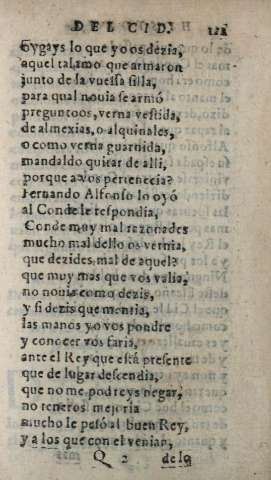 DEL CID. 121
Oygays lo que yo os dezia,
aquel talamo que armaron
junto de la vuessa silla,
para qual nouia se armò
preguntoos, verna vestida,
de almexias, o alquinales,
o como verna guarnida,
mandaldo quitar de alli,
porque a vos pertenecia?
Fernando Alfonso lo oyó
al Conde le respondia,
Conde muy mal razonades
mucho mal dello os vernia,
que dezides mal de aquel?
que muy mas que vos valia,
no nouia como dezis,
y si dezis que mentia,
las manos yo vos pondre
y conocer vos faria,
ante el Rey que està presente
que de lugar descendia,
que no me podreys negar,
no teneros mejoria
mucho le pesò al buen Rey,
y a los que con el venian,
Q 2 de lo